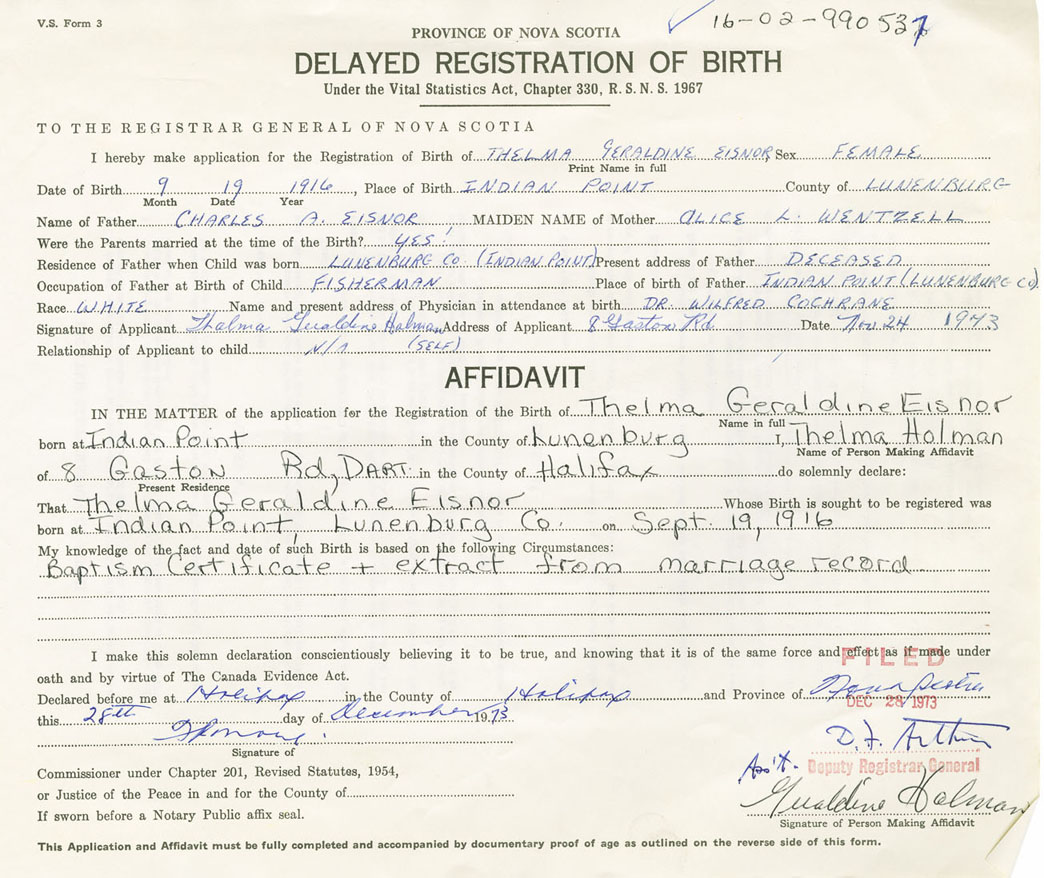 V.S. Form 3
16-02-990537
PROVINCE OF NOVA SCOTIA
DELAYED REGISTRATION OF BIRTH
Under the Vital Statistics Act, Chapter 330, R.S.N.S. 1967
TO THE REGISTRAR GENERAL OF NOVA SCOTIA
I hereby make application for the Registration of Birth of THELMA GERALDINE EISNOR, Sex FEMALE
Print Name in full
Date of Birth 9 19 1916, Place of Birth INDIAN POINT County of LUNENBURG
Month Date Year
Name of Father CHARLES A. EISNOR MAIDEN NAME of Mother ALICE L. WENTZELL
Were the Parents married at the time of the Birth? YES!
Residence of Father when Child was born LUNENBURG CO. (INDIAN POINT) Present address of Father DECEASED
Occupation of Father at Birth of Child FISHERMAN Place of birth of Father INDIAN POINT (LUNENBURG CO).
Race WHITE Name and present address of Physician in attendance at birth DR. WILFRED COCHRANE
Signature of Applicant Thelma Geraldine Holman Address of Applicant 8 Gaston Rd. Date Nov 24 1973
Relationship of Applicant to child N/A (SELF)
AFFIDAVIT
IN THE MATTER of the application for the Registration of the Birth of Thelma Geraldine Eisnor
Name in full
born at Indian Point in the County of Lunenburg I, Thelma Holman
Name of Person Making Affidavit
of 8 Gaston Rd, DART. in the County of Halifax do solemnly declare:
Present Residence
That Thelma Geraldine Eisnor Whose Birth is sought to be registered was
born at Indian Point, Lunenburg Co. on Sept. 19, 1916
My knowledge of the fact and date of such Birth is based on the following Circumstances:
Baptism Certificate + extract from marriage record
I make this solemn declaration conscientiously believing it to be true, and knowing that it is of the same force and effect as if made under
FILED
oath and by virtue of The Canada Evidence Act.
Declared before me at Halifax in the County of Halifax and Province of Nova Scotia
DEC 28 1973
this 28th day of December 1973
Signature of
D. F. Arthur
Ass't. Deputy Registrar General
Commissioner under Chapter 201, Revised Statutes, 1954,
or Justice of the Peace in and for the County of
Geraldine Holman
If sworn before a Notary Public affix seal.
Signature of Person Making Affidavit
This Application and Affidavit must be fully completed and accompanied by documentary proof of age as outlined on the reverse side of this form.